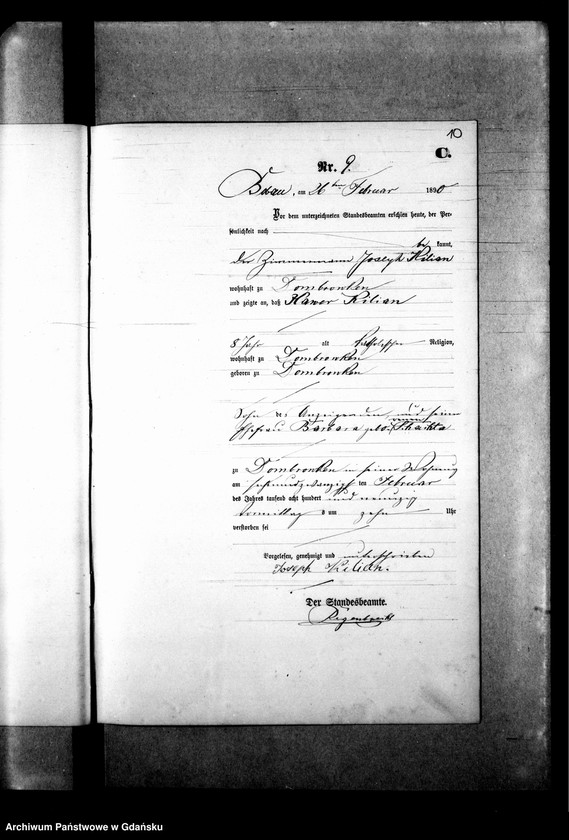 10
C.
Nr. 9.
Bobau, am 26ten Februar 1890
Vor dem unterzeichneten Standesbeamten erschien heute, der Per-
sönlichkeit nach
be kannt,
der Zimmermann Joseph Kilian
wohnhaft zu Dombrowken
und zeigte an, daß Xawer Kilian
8 Jahr alt katholischer Religion,
wohnhaft zu Dombrowken
geboren zu Dombrowken
Sohn des Anzeigenden und seiner
Ehefrau Barbara geborenen
zu Dombrowken in seiner Wohnung
am sechsundzwanzigsten Februar
des Jahres tausend acht hundert und neunzig
Vormittags um zehn Uhr
verstorben sei
Vorgelesen, genehmigt und unterschrieben
Joseph Kilian.
Der Standesbeamte.
Regenbrecht
Archiwum Państwowe w Gdańsku